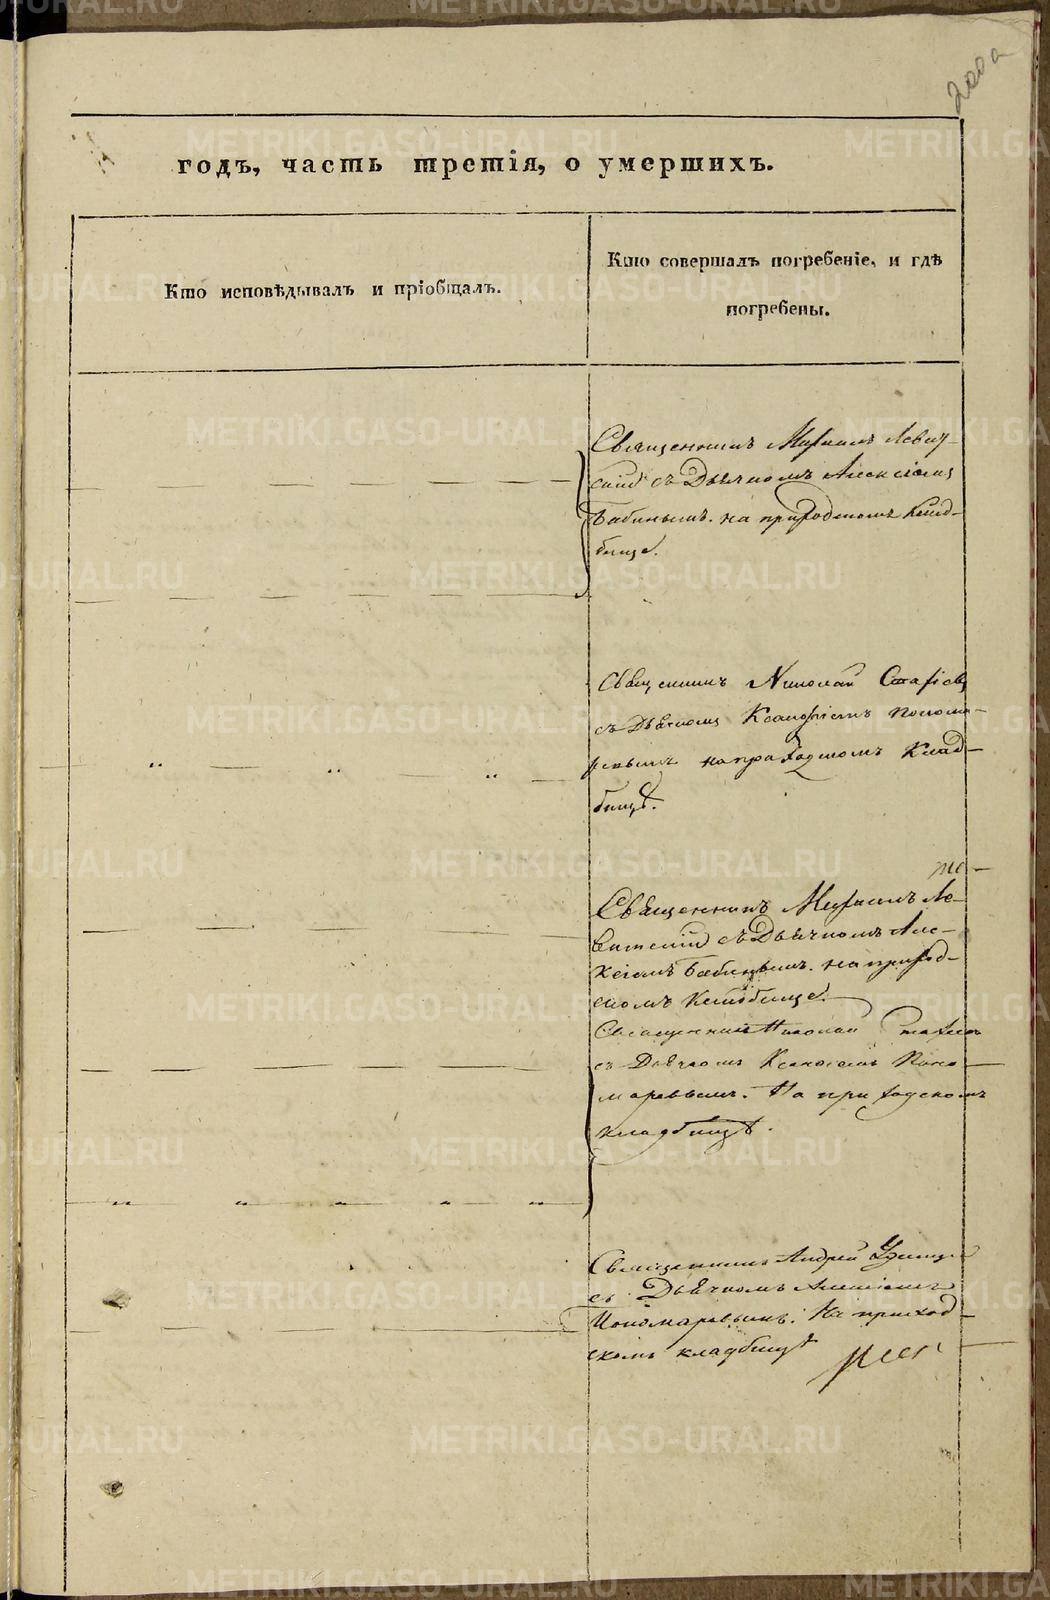 200а
годъ, часть третія, о умершихъ.
Кто исповѣдывалъ и пріобщалъ.
Кто совершалъ погребеніе, и гдѣ
погребены.
Священникъ Михаилъ Левит-
скій съ Дьячкомъ Алексіемъ
Бабинымъ. на приходскомъ клад-
бище.
Священникъ Николай
съ Дьячкомъ Понома-
ревымъ на приходскомъ Клад-
бищѣ.
Священникъ Михаилъ Ле-
витскій съ Дьячкомъ Але-
ксіемъ Бабинымъ. на приход-
скомъ Кладбище.
Священникъ Николай
съ Дьячкомъ Поно-
маревымъ. На приходскомъ
кладбищѣ.
Священникъ Андрей
съ Дьячкомъ Алексіемъ
Пономаревымъ. На приход-
скомъ кладбищѣ
METRIKI.GASO-URAL.RU